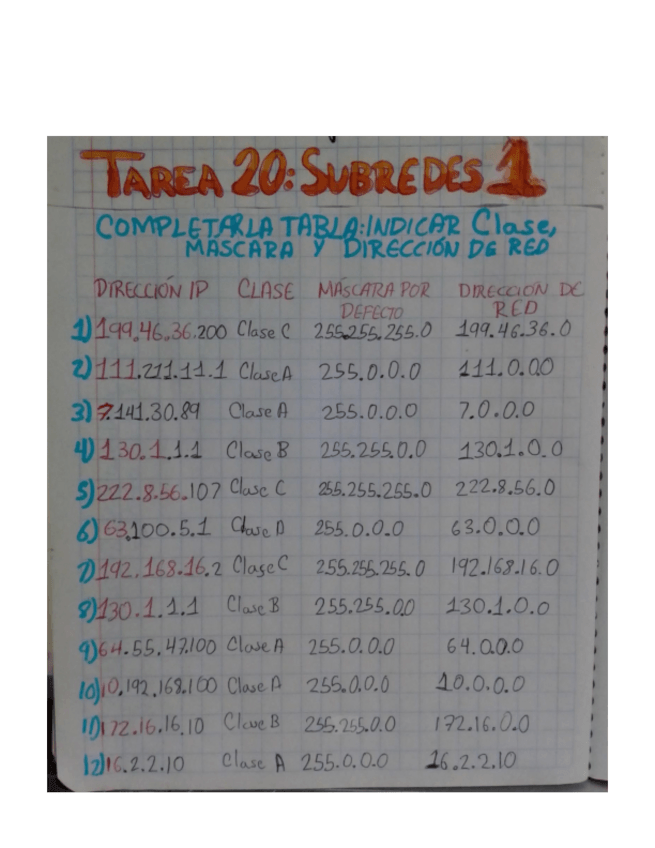 TAREA 20: SUBREDES 1
COMPLETAR LA TABLA: INDICAR Clase,
MASCARA Y DIRECCIÓN DE RED
DIRECCIÓN IP CLASE MÁSCARA POR DEFECTO DIRECCION DE RED
1) 199.46.36.200 Clase C 255.255.255.0 199.46.36.0
2) 111.211.11.1 Clase A 255.0.0.0 111.0.0.0
3) 7.141.30.89 Clase A 255.0.0.0 7.0.0.0
4) 130.1.1.1 Clase B 255.255.0.0 130.1.0.0
5) 222.8.56.107 Clase C 255.255.255.0 222.8.56.0
6) 63.100.5.1 Clase A 255.0.0.0 63.0.0.0
7) 192.168.16.2 Clase C 255.255.255.0 192.168.16.0
8) 130.1.1.1 Clase B 255.255.0.0 130.1.0.0
9) 64.55.47.100 Clase A 255.0.0.0 64.0.0.0
10) 10.192.168.100 Clase A 255.0.0.0 10.0.0.0
11) 172.16.16.10 Clase B 255.255.0.0 172.16.0.0
12) 16.2.2.10 Clase A 255.0.0.0 16.2.2.10